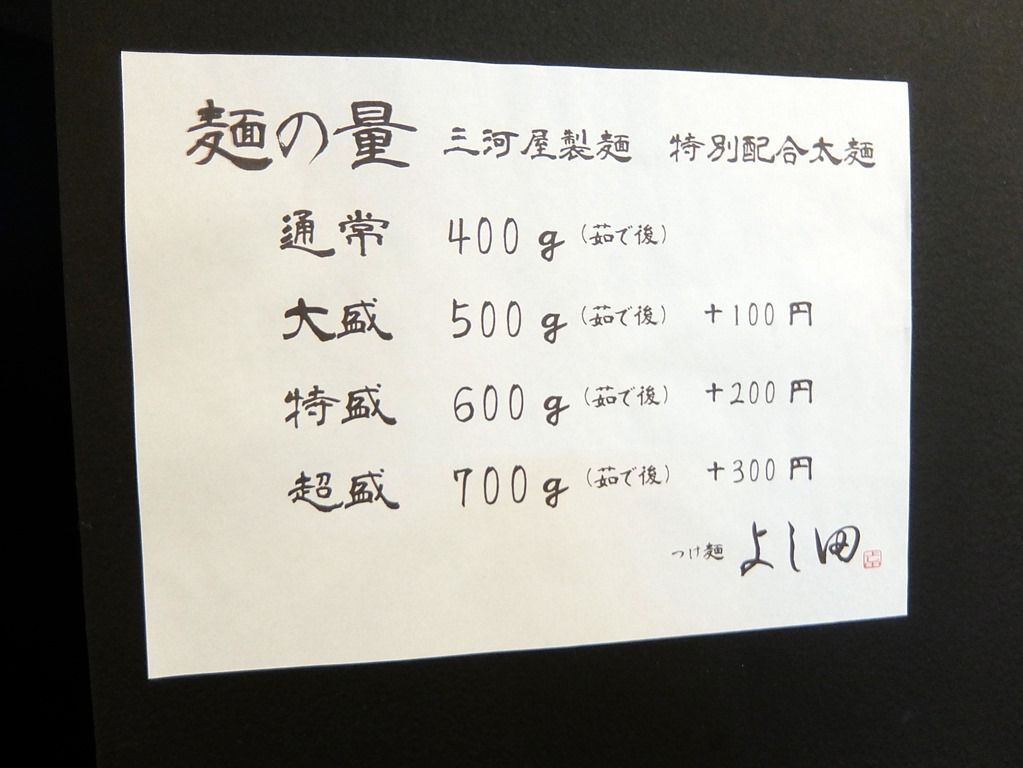 麺の量 三河屋製麺 特別配合太麺
通常 400g (茹で後)
大盛 500g (茹で後) +100円
特盛 600g (茹で後) +200円
超盛 700g (茹で後) +300円
つけ麺 よし田